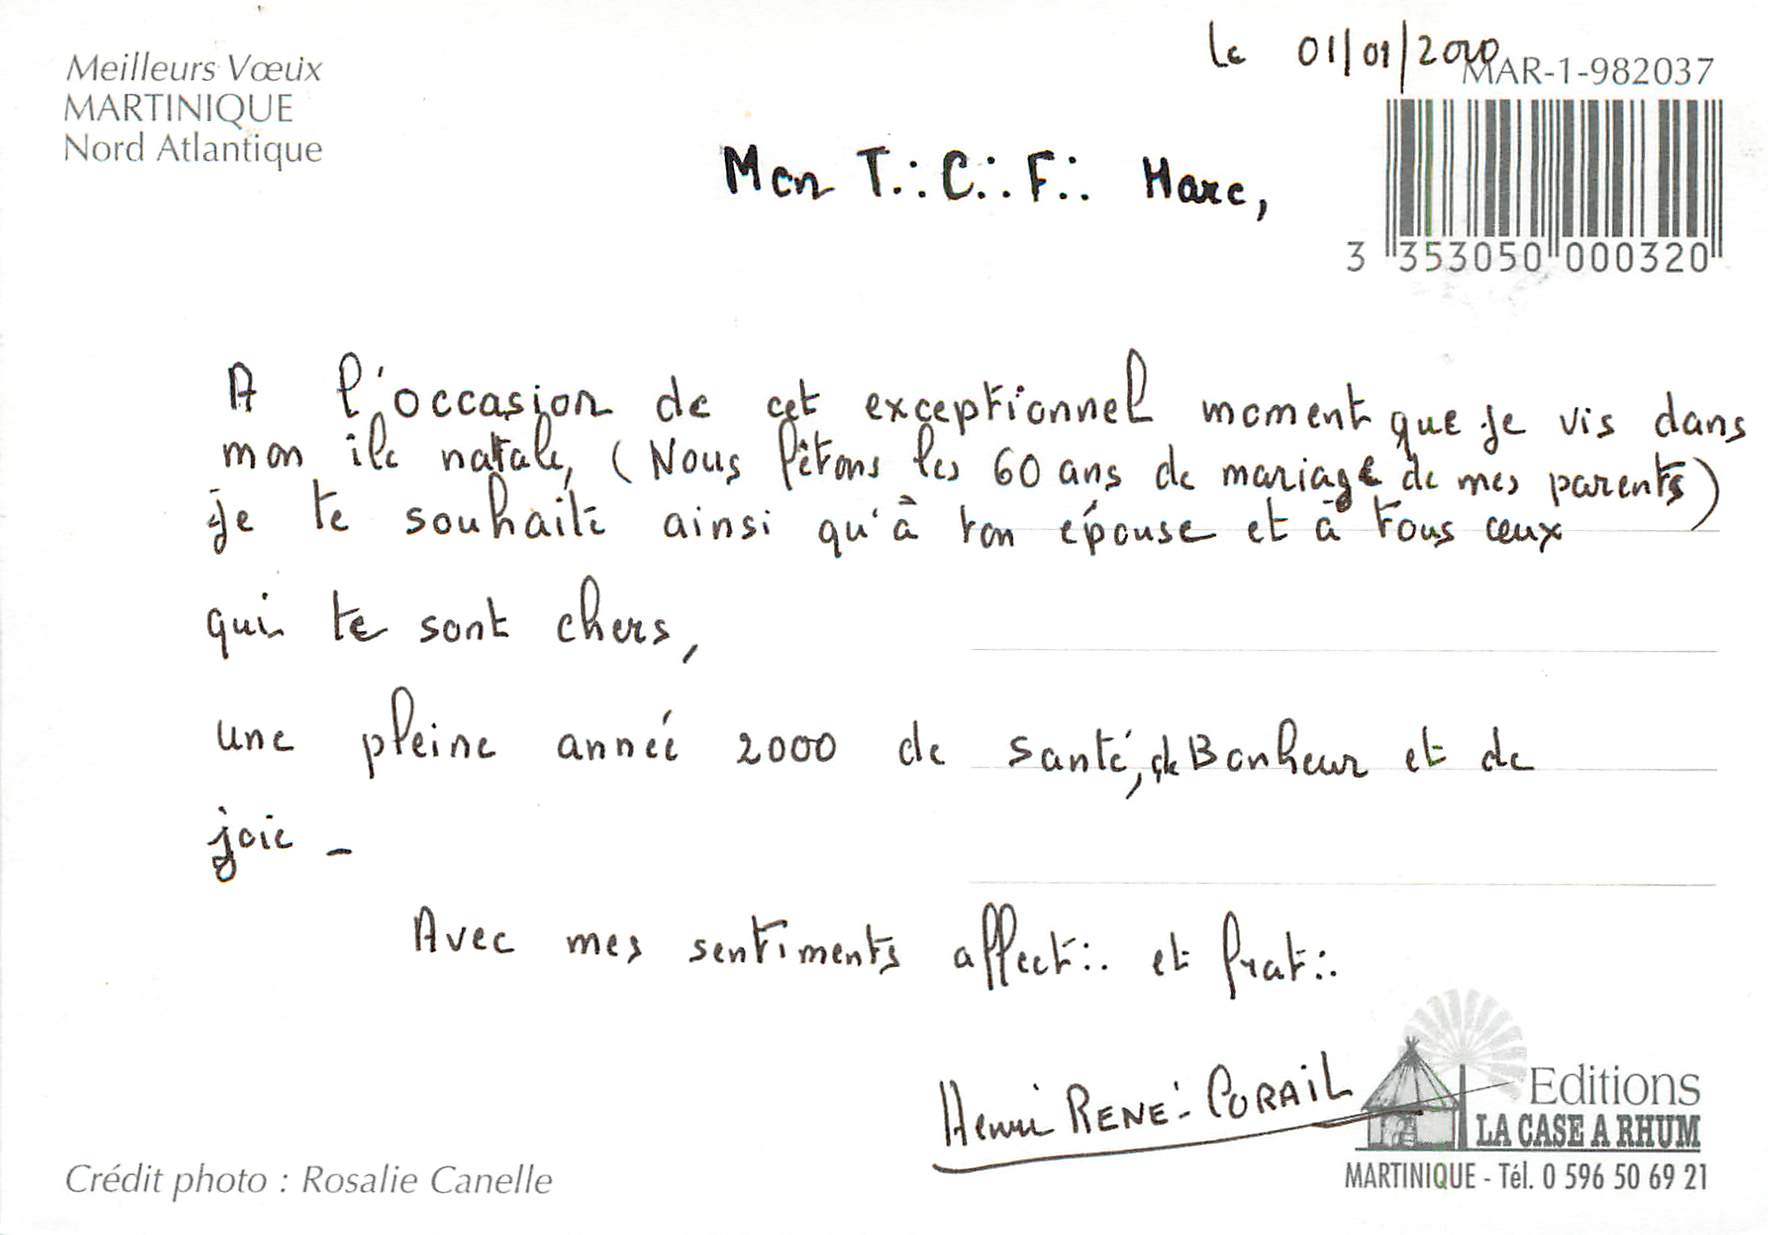 le 01/01/2000
Meilleurs Vœux
MARTINIQUE
Nord Atlantique
MAR-1-982037
3 353050 000320
Mon T∴C∴F∴ Marc,
A l'occasion de cet exceptionnel moment que je vis dans
mon ile natale, (Nous fêtons les 60 ans de mariage de mes parents)
je te souhaite ainsi qu'à ton épouse et à tous ceux
qui te sont chers,
une pleine année 2000 de Santé, de Bonheur et de
joie _
Avec mes sentiments affect∴ et frat∴
Henri RENÉ-CORAIL
Editions
LA CASE A RHUM
MARTINIQUE - Tél. 0 596 50 69 21
Crédit photo : Rosalie Canelle